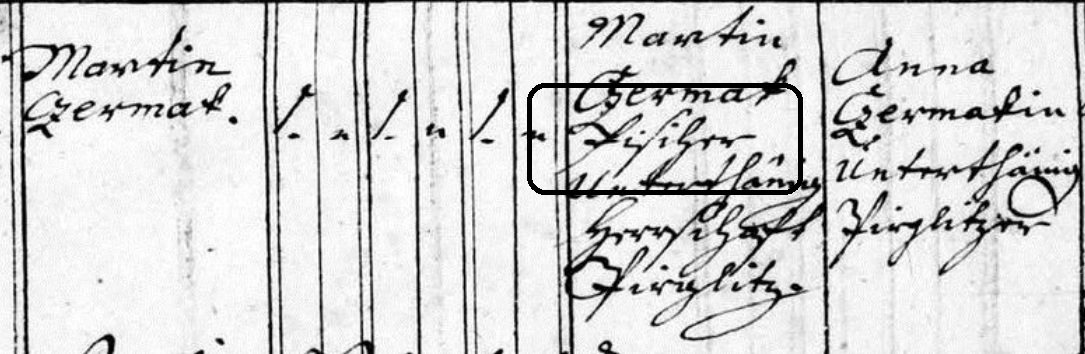 Martin
Czermak.
Martin
Czermak
Fischer
Unterthänig
Herrschaft
Pirglitz.
Anna
Czermakin
Unterthänig
Pirglitzer